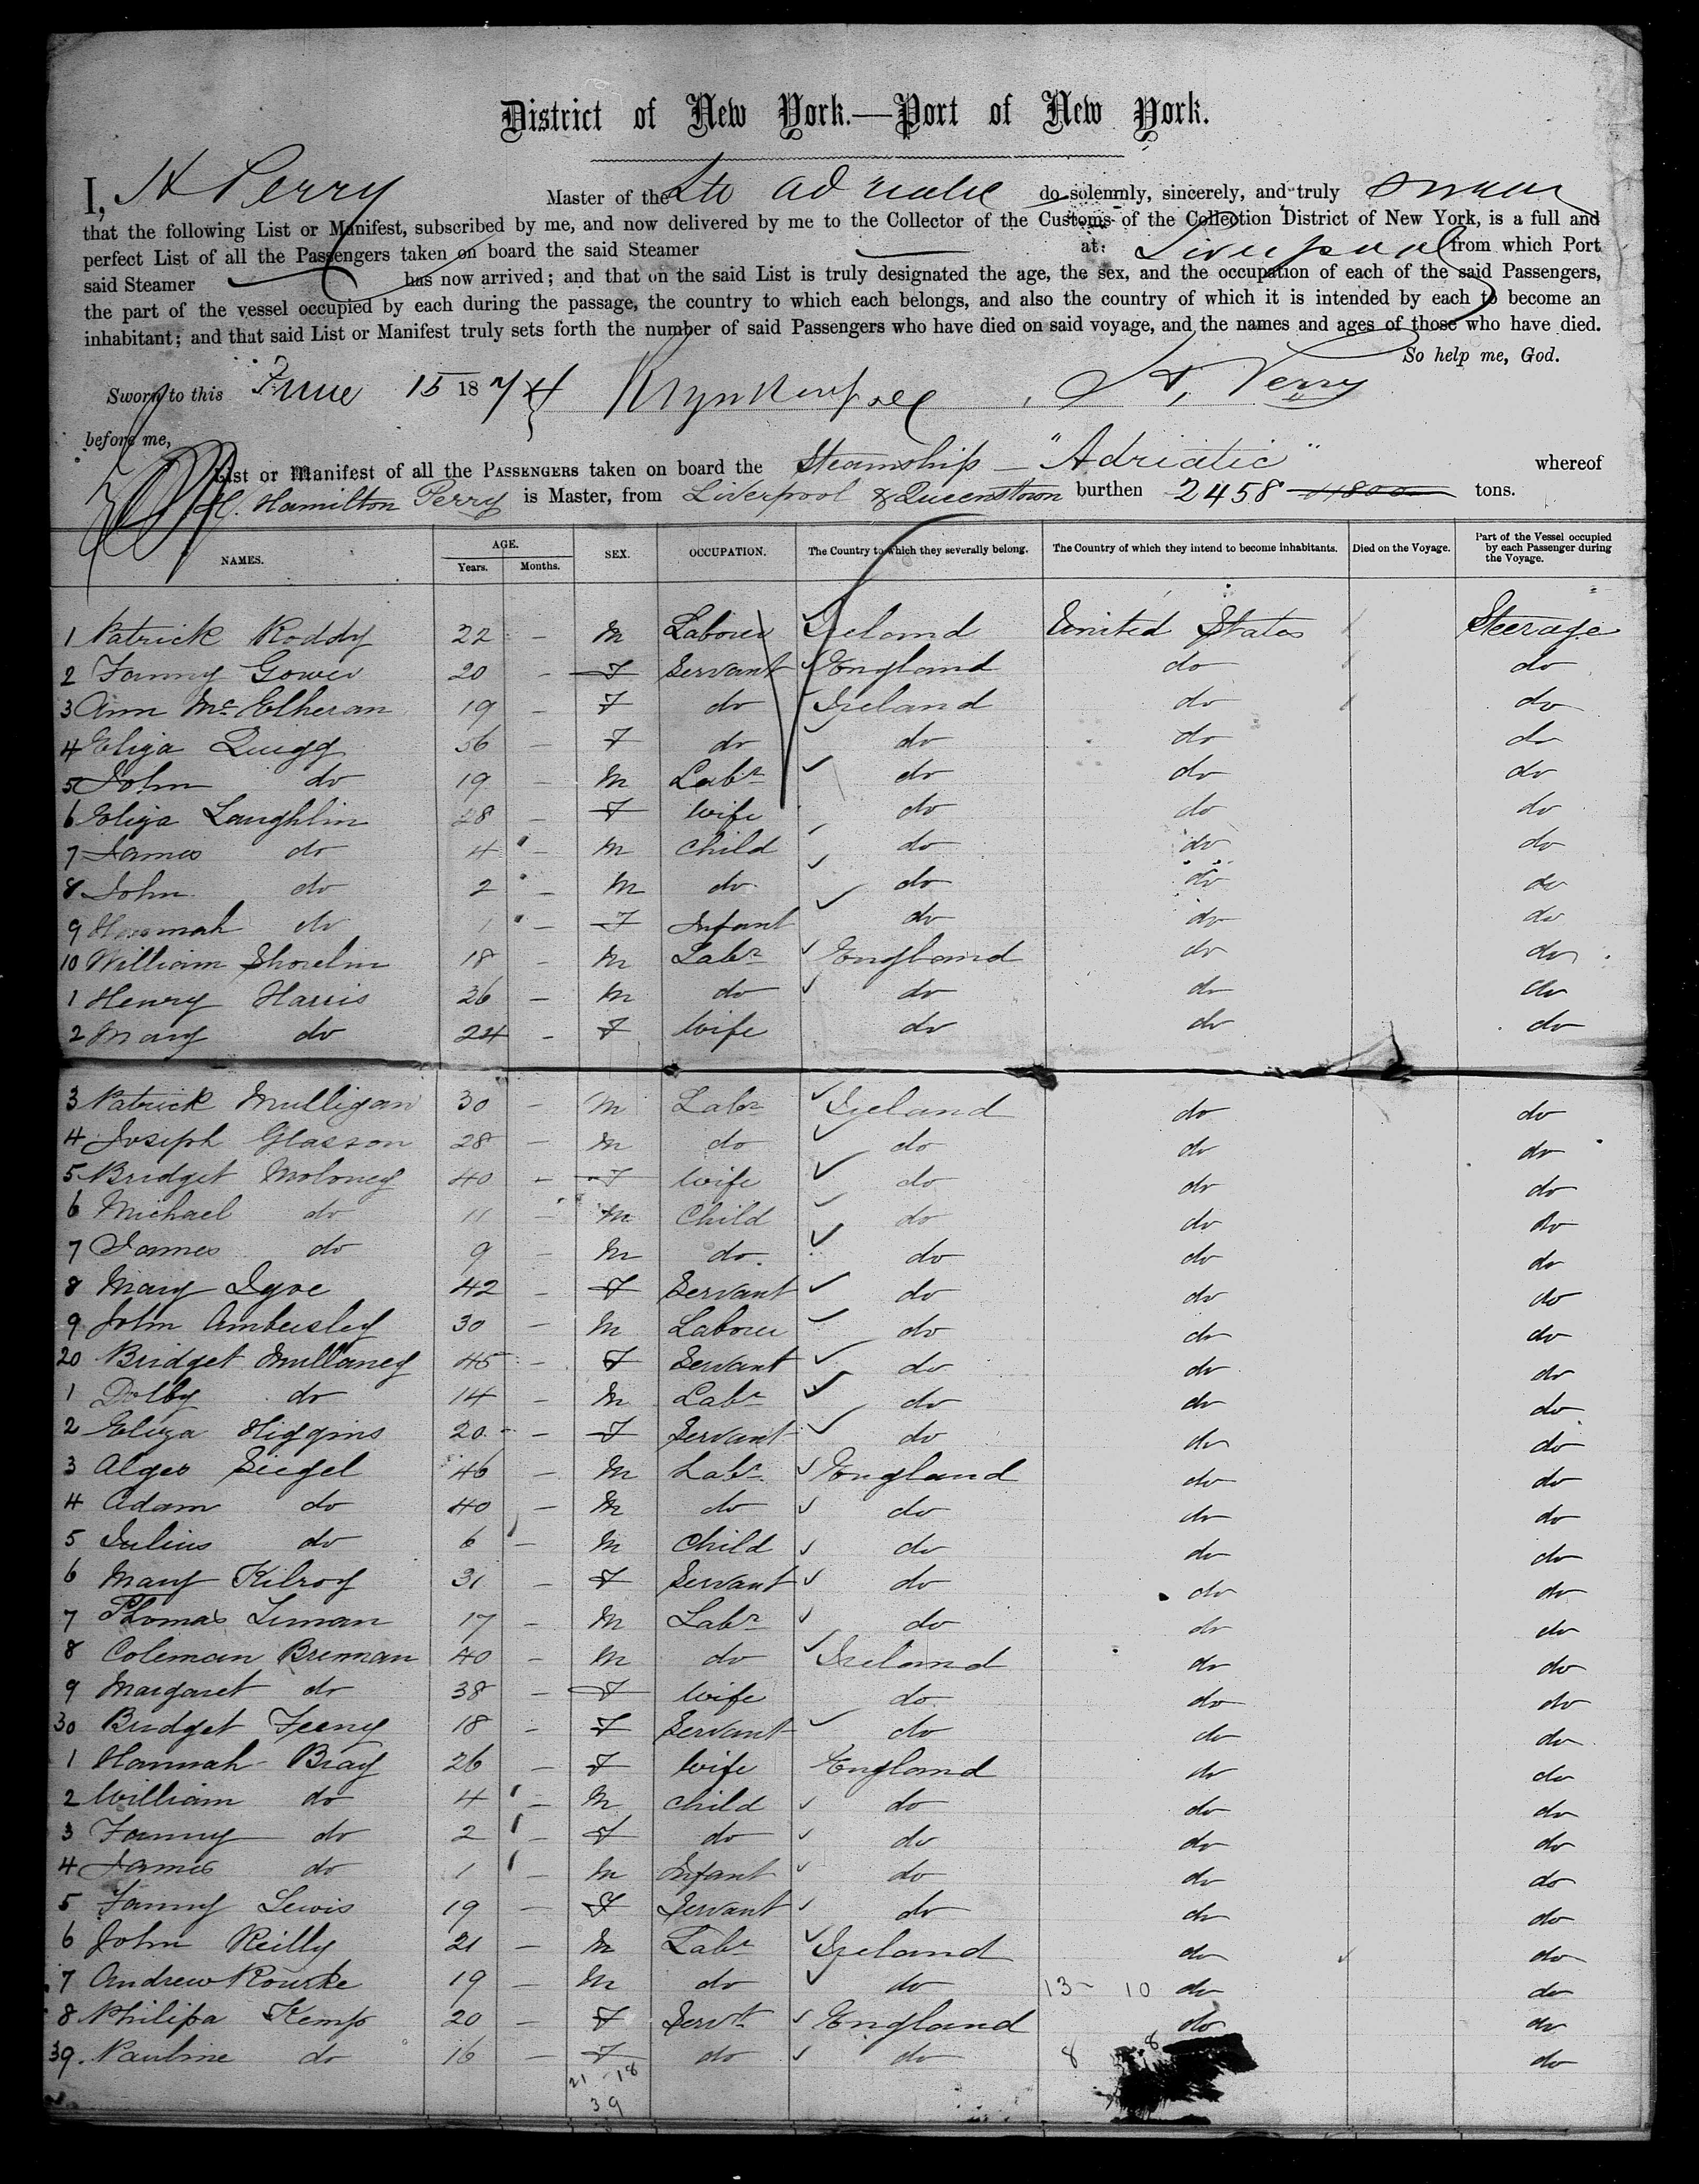 District of New York.—Port of New York.
I, H Perry Master of the Str Adriatic do solemnly, sincerely, and truly swear
that the following List or Manifest, subscribed by me, and now delivered by me to the Collector of the Customs of the Collection District of New York, is a full and
perfect List of all the Passengers taken on board the said Steamer at Liverpool from which Port
said Steamer has now arrived; and that on the said List is truly designated the age, the sex, and the occupation of each of the said Passengers,
the part of the vessel occupied by each during the passage, the country to which each belongs, and also the country of which it is intended by each to become an
inhabitant; and that said List or Manifest truly sets forth the number of said Passengers who have died on said voyage, and the names and ages of those who have died.
So help me, God.
Sworn to this June 15 1874 H. Perry
before me,
List or Manifest of all the PASSENGERS taken on board the Steamship — "Adriatic" whereof
H. Hamilton Perry is Master, from Liverpool & Queenstown burthen 2458 tons.
NAMES. AGE. Years. Months. SEX. OCCUPATION. The Country to which they severally belong. The Country of which they intend to become inhabitants. Died on the Voyage. Part of the Vessel occupied by each Passenger during the Voyage.
1 Patrick Roddy 22 — M Laborer Ireland United States Steerage
2 Fanny Gower 20 — F Servant England do do
3 Ann McElheran 19 — F do Ireland do do
4 Eliza Quigg 56 — F do do do do
5 John do 19 — M Labr do do do
6 Eliza Laughlin 28 — F Wife do do do
7 James do 4 — M Child do do do
8 John do 2 — M do do do do
9 Hannah do 1 — F Infant do do do
10 William 18 — M Labr England do do
1 Henry Harris 26 — M do do do do
2 Mary do 24 — F Wife do do do
3 Patrick Mulligan 30 — M Labr Ireland do do
4 Joseph Glasson 28 — M do do do do
5 Bridget Moloney 40 — F Wife do do do
6 Michael do 11 — M Child do do do
7 James do 9 — M do do do do
8 Mary Dyoe 42 — F Servant do do do
9 John Ambersley 30 — M Laborer do do do
20 Bridget Mullaney 45 — F Servant do do do
1 do 14 — M Labr do do do
2 Eliza Higgins 20 — F Servant do do do
3 Alger Siegel 46 — M Labr England do do
4 Adam do 40 — M do do do do
5 Julius do 6 — M Child do do do
6 Mary Kilroy 31 — F Servant do do do
7 Thomas Liman 17 — M Labr do do do
8 Coleman Brennan 40 — M do Ireland do do
9 Margaret do 38 — F Wife do do do
30 Bridget Feeny 18 — F Servant do do do
1 Hannah Bray 26 — F Wife England do do
2 William do 4 — M Child do do do
3 Fanny do 2 — F do do do do
4 James do 1 — M Infant do do do
5 Fanny Lewis 19 — F Servant do do do
6 John Reilly 21 — M Labr Ireland do do
7 Andrew Rourke 19 — M do do 13 10 do do
8 Philipa Kemp 20 — F Servt England do do
39. Pauline do 16 — F do do 8 8 do
21 18
39